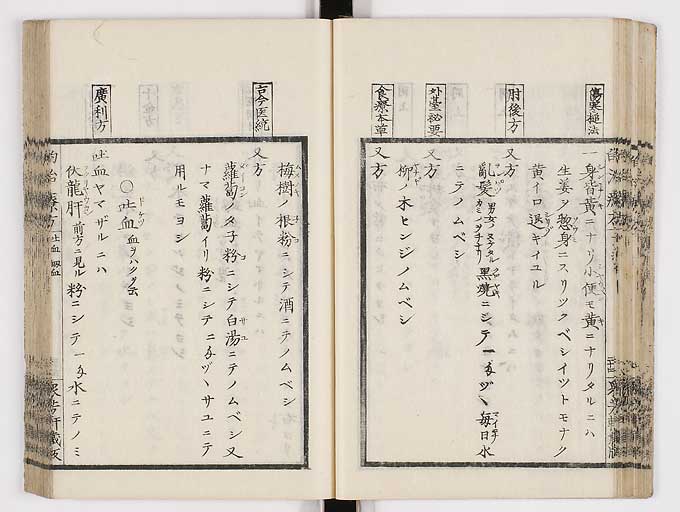 傷寒槌法
一身皆黄ニナリ小便モ黄ニナリタルニハ
生姜ヲ惣身ニスリツクベシイツトモナク
黄イロ退キイユル
肘後方
又方
乱髪 黒焼ニシテ一匁ヅヽ毎日水
ニテノムベシ
外臺秘要
又方
柳ノ木ヒンジノムベシ
食療本草
又方
梅樹ノ根粉ニシテ酒ニテノムベシ
古今医統
又方
蘿蔔ノタ子粉ニシテ白湯ニテノムベシ又
ナマ蘿蔔イリ粉ニシテ二匁ヅヽサユニテ
用ルモヨシ
○吐血 血ヲハク
廣利方
吐血ヤマザルニハ
伏龍肝 前方ニ見ル 粉ニシテ一匁水ニテノミ
吐血